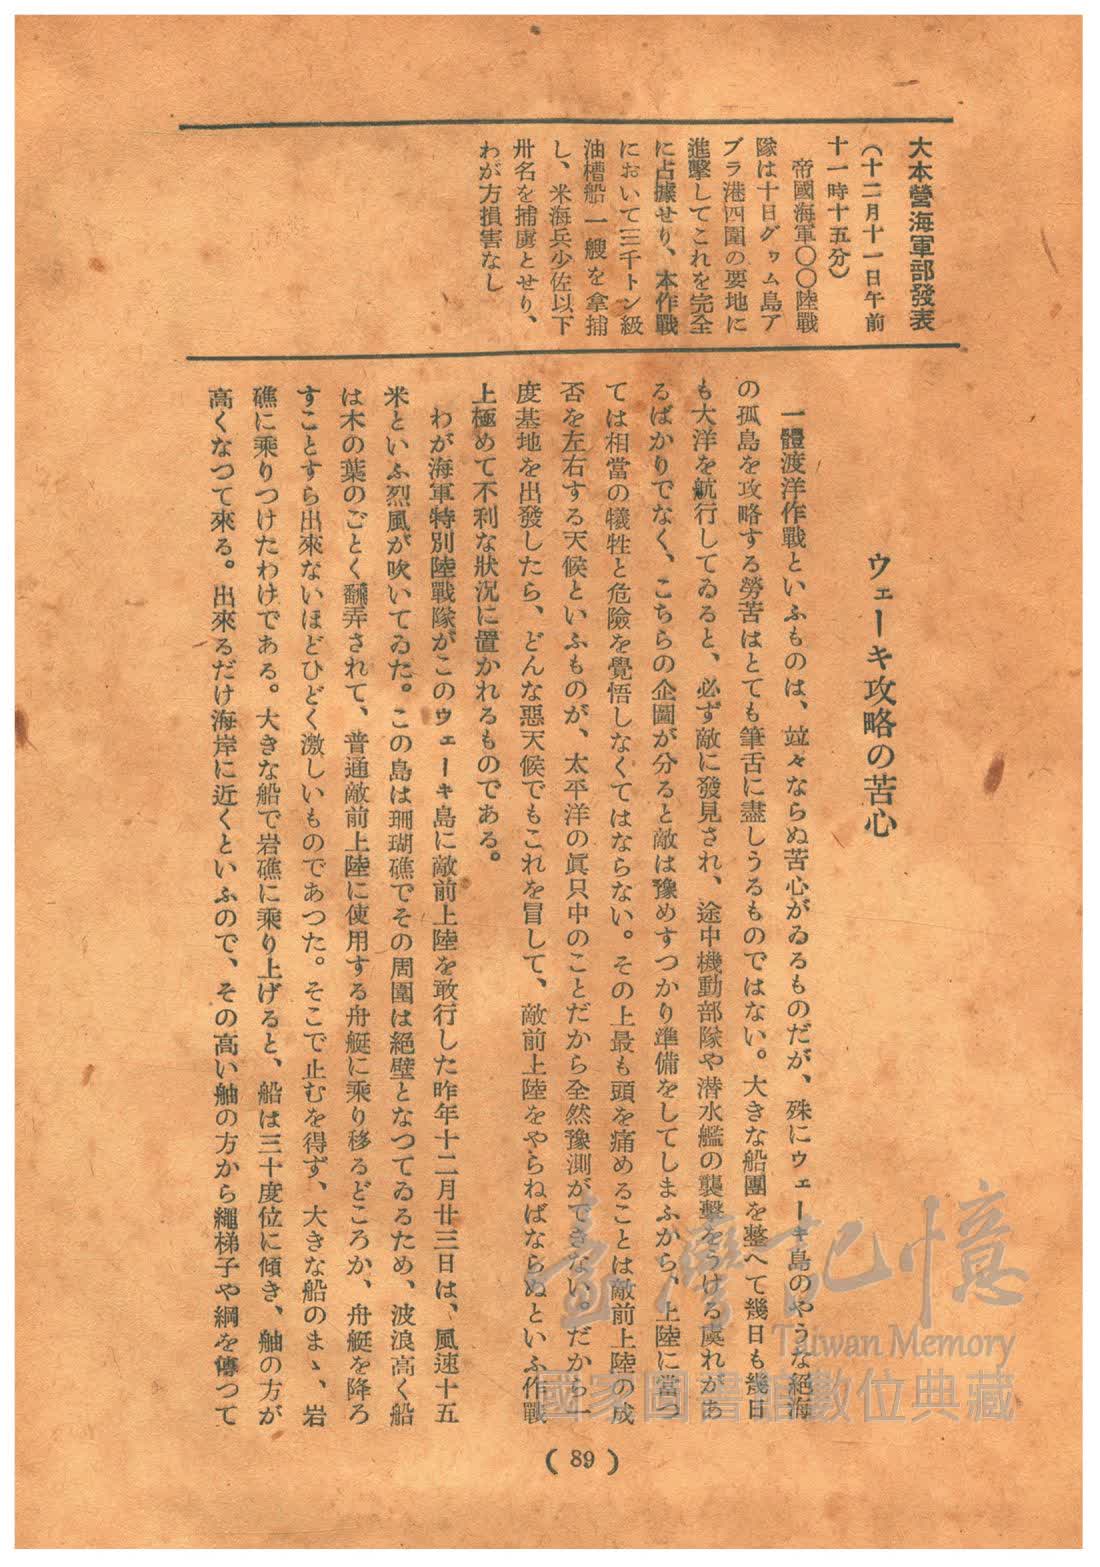 大本營海軍部發表
(十二月十一日午前
十一時十五分)
帝國海軍〇〇陸戰
隊は十日グヮム島ア
ブラ港四圍の要地に
進擊してこれを完全
に占據せり、本作戰
において三千トン級
油槽船一艘を拿捕
し、米海兵少佐以下
卅名を捕虜とせり、
わが方損害なし
ウェーキ攻略の苦心
一體渡洋作戰といふものは、竝々ならぬ苦心がゐるものだが、殊にウェーキ島のやうな絕海
の孤島を攻略する勞苦はとても筆舌に盡しうるものではない。大きな船團を整へて幾日も幾日
も大洋を航行してゐると、必ず敵に發見され、途中機動部隊や潜水艦の襲擊をうける虞れがあ
るばかりでなく、こちらの企圖が分ると敵は豫めすつかり準備をしてしまふから、上陸に當つ
ては相當の犧牲と危險を覺悟しなくてはならない。その上最も頭を痛めることは敵前上陸の成
否を左右する天候といふものが、太平洋の眞只中のことだから全然豫測ができない。だから一
度基地を出發したら、どんな惡天候でもこれを冒して、敵前上陸をやらねばならぬといふ作戰
上極めて不利な狀況に置かれるものである。
わが海軍特別陸戰隊がこのウェーキ島に敵前上陸を敢行した昨年十二月廿三日は、風速十五
米といふ烈風が吹いてゐた。この島は珊瑚礁でその周圍は絕壁となつてゐるため、波浪高く船
は木の葉のごとく飜弄されて、普通敵前上陸に使用する舟艇に乘り移るどころか、舟艇を降ろ
すことすら出來ないほどひどく激しいものであつた。そこで止むを得ず、大きな船のまゝ、岩
礁に乘りつけたわけである。大きな船で岩礁に乘り上げると、船は三十度位に傾き、舳の方が
高くなつて來る。出來るだけ海岸に近くといふので、その高い舳の方から繩梯子や綱を傳つて
(89)
臺灣記憶
Taiwan Memory
國家圖書館數位典藏